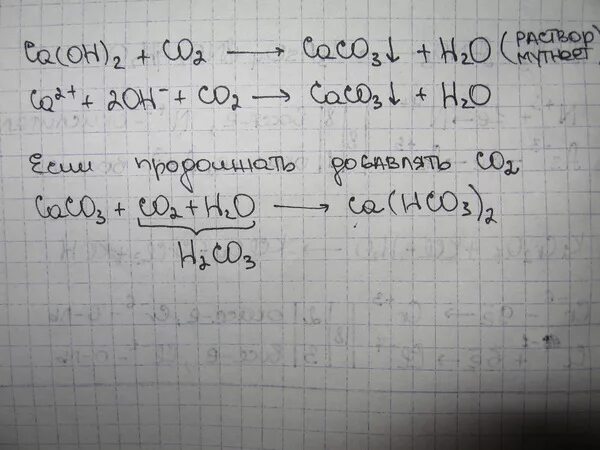 Ca(OH)₂ + CO₂ → CaCO₃↓ + H₂O (РАСТВОР МУТНЕЕТ)
Ca²⁺ + 2OH⁻ + CO₂ → CaCO₃↓ + H₂O
Если продолжать добавлять CO₂
CaCO₃ + CO₂ + H₂O → Ca(HCO₃)₂
H₂CO₃